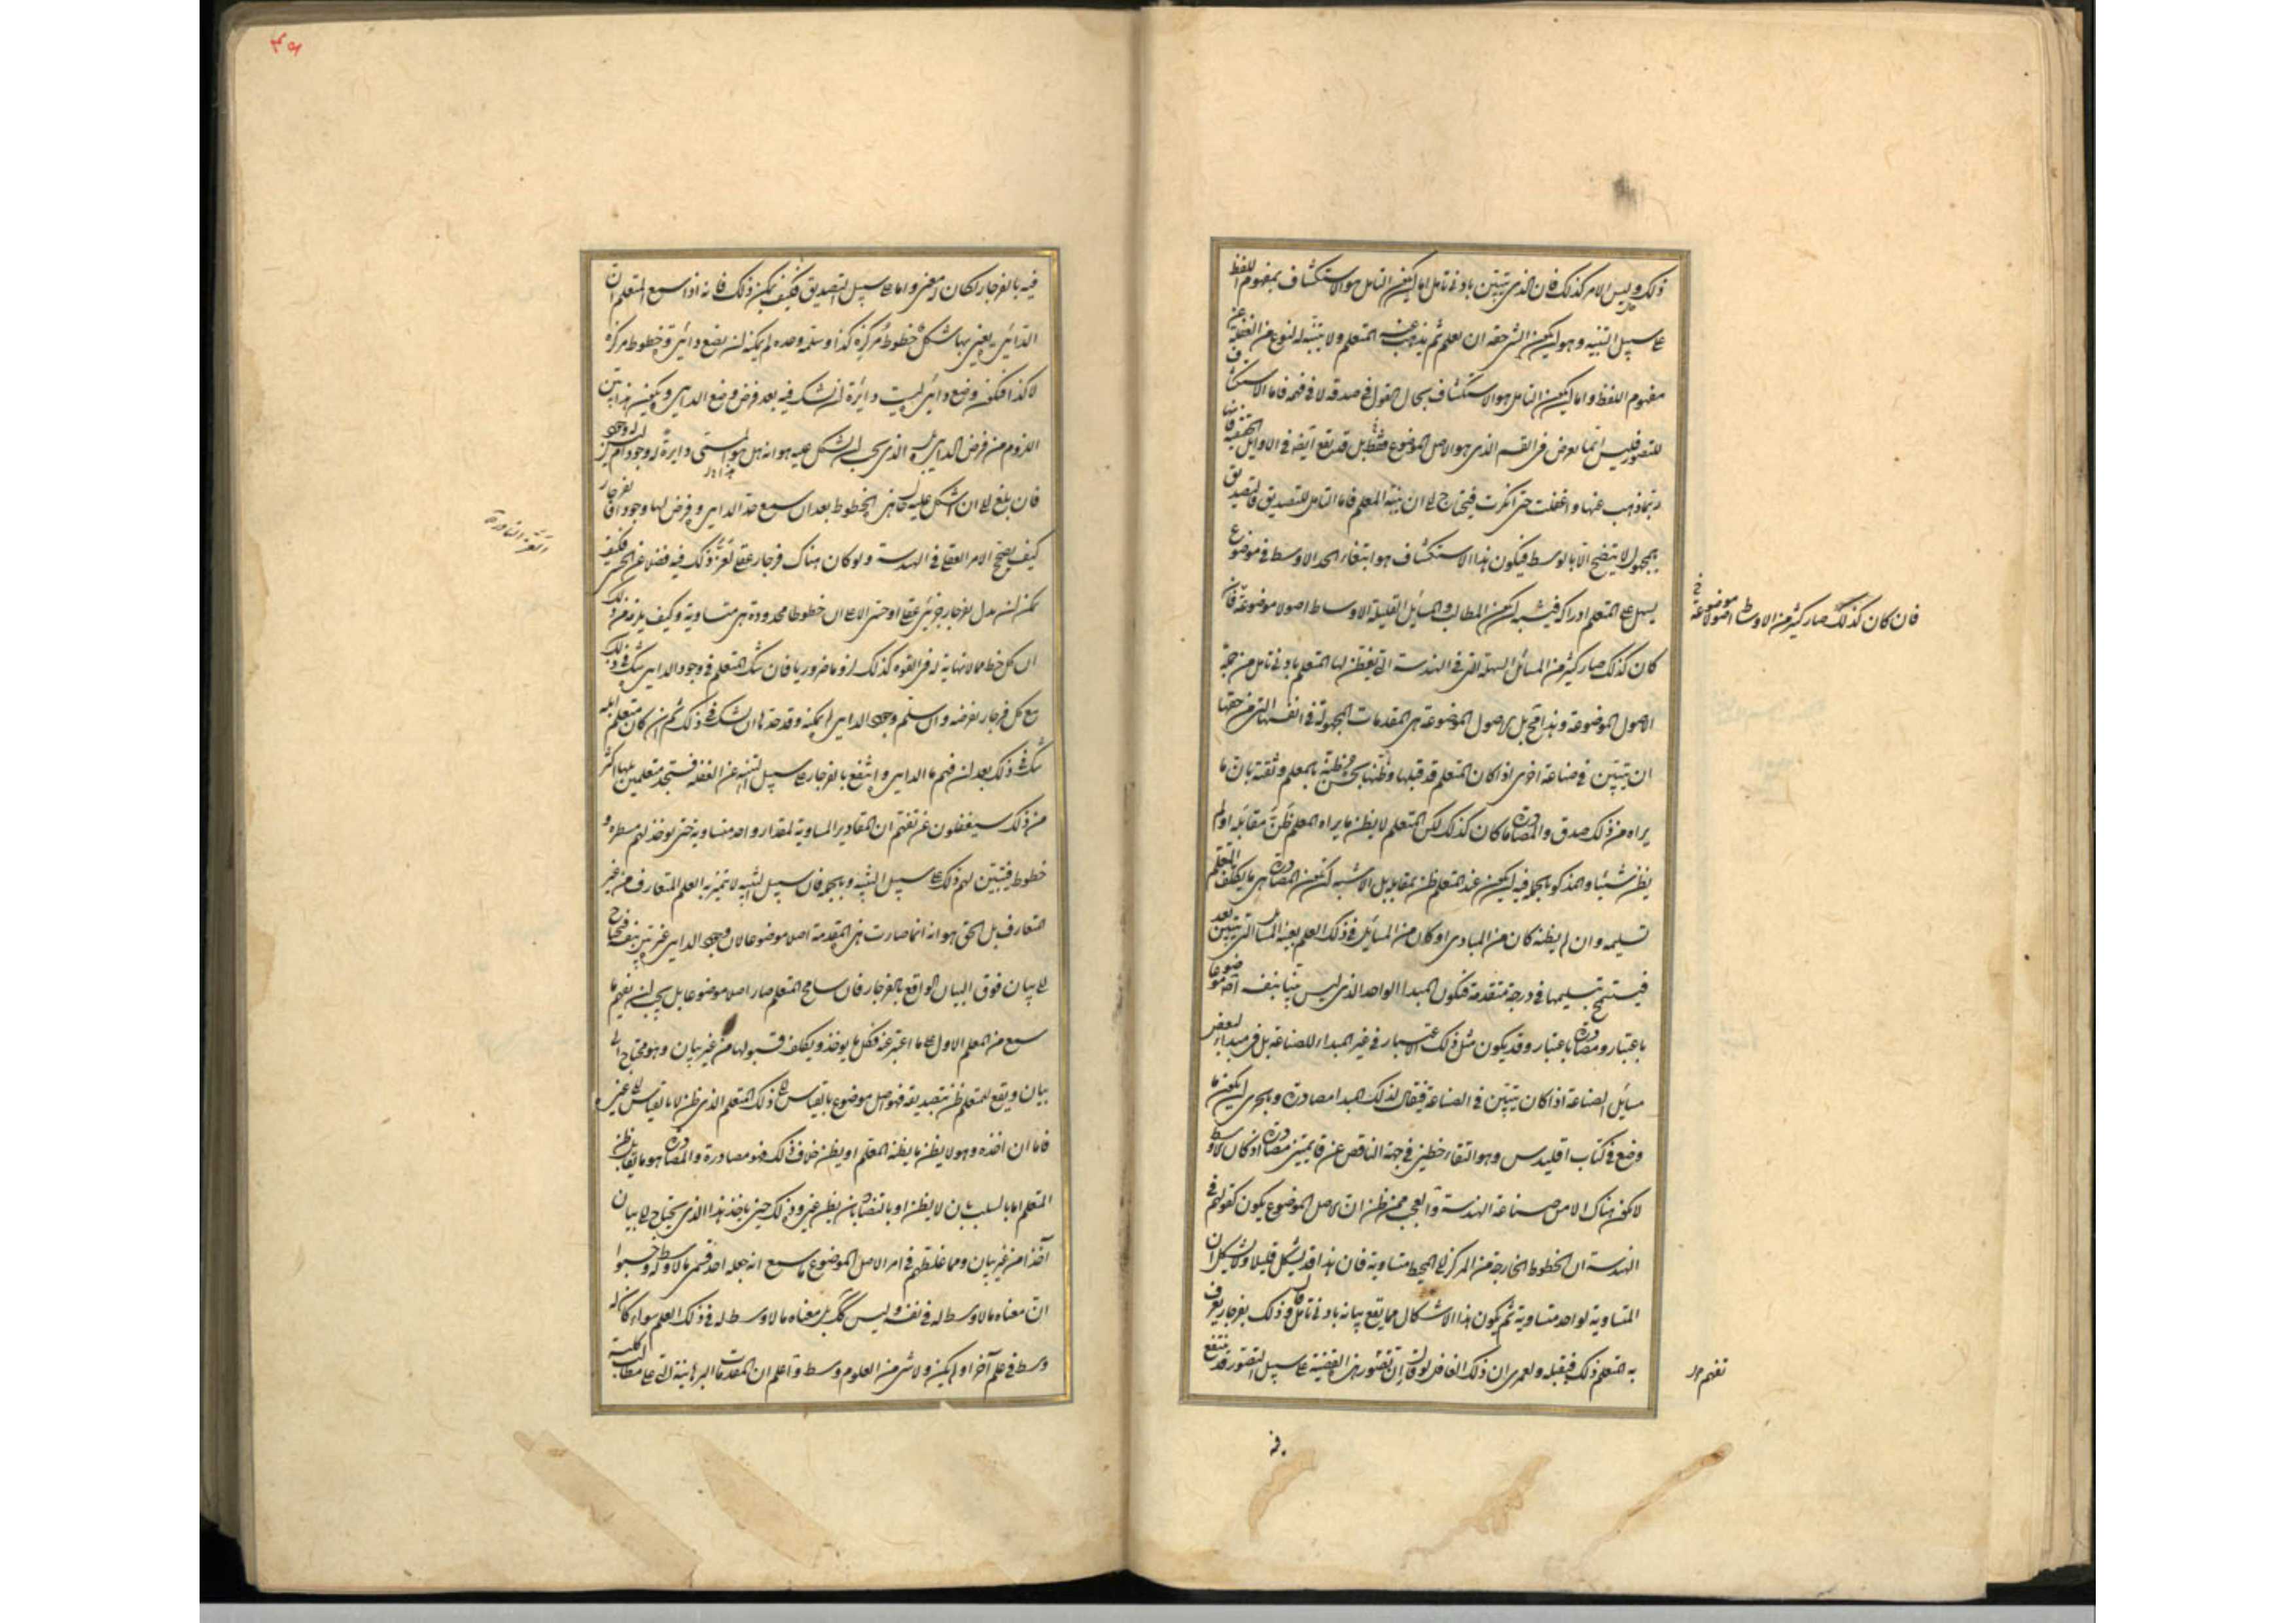 ذلك وليس الامر كذلك فان الذى يتبين بادنى تامل اما ان يكون التامل هو الاستكشاف بمفهوم اللفظ
على سبيل التنبيه وهو ان يكون الشئ حقه ان يعلم ثم يذهب عنه المتعلم ولا يتنبه له لنوع من الغفلة عن
مفهوم اللفظ واما ان يكون التامل هو الاستكشاف بحال القول فى صدقه لا فى فهمه فاما الاستكشاف
للتصور فليس انما يعرض فى القسم الذى هو الاصل الموضوع فقط بل قد يقع ايضا فى الاوايل الحقيقية فانها
ربما ذهب عنها واغفلت حتى انكرت فيحتاج الى ان ينبه المعلم فاما التامل للتصديق فالتصديق
بمجهول لا يتضح الا بالوسط فيكون هذا الاستكشاف هو ابتغاء الحد الاوسط فى موضوع
يسهل على المتعلم ادراكه فيشبه ان يكون المطالب والمسائل القليلة الاوساط اصولا موضوعة فان
كان كذلك صار كثير من المسائل السهلة التى فى الهندسة التى يفطن لها المتعلم بادنى تامل من جملة
الاصول الموضوعة وهذا قبيح بل الاصول الموضوعة هى المقدمات المجهولة فى انفسها التى من حقها
ان يتبين فى صناعة اخرى اذا كان المتعلم قد قبلها وظنها بحسن ظنه بالمعلم وثقته بان ما
يراه من ذلك صدق والمصادرة ما كان كذلك لكن المتعلم لا يظن ما يراه المعلم ظن مقابله او لم
يظن شيئا والمذكور بالجملة فيه ان يكون عند المتعلم ظن بمقابله بل الاشبه ان يكون المصادرة هى ما يكلف المتعلم
تسليمه وان لم يظنه كان من المبادى او كان من المسائل فى ذلك العلم بعينه المسائل التى تتبين بعد
فيستسمح تسليمها فى درجة متقدمة فيكون المبدا الواحد الذى ليس بينا بنفسه اصلا موضوعا
باعتبار ومصادرة باعتبار وقد يكون مثل ذلك الاعتبار فى غير المبداء للصناعة بل فى مبداء لبعض
مسايل الصناعة اذا كان يتبين فى الصناعة فيقال لذلك المبدا مصادرة وبالحرى ان يكون ما
وضع فى كتاب اقليدس وهو التقاء خطين فى جهة الناقص عن قايمتين مصادرة اذ كان لا وسط
لا يكون هناك الا من صناعة الهندسة والعجب ممن ظن ان الاصل الموضوع يكون كقولهم فى
الهندسة ان الخطوط الخارجة من المركز الى المحيط متساوية فان هذا قد يشكل قليلا ولا يشكل ان
المتساوية لواحد متساوية ثم يكون هذا الاشكال مما يقع بيانه بادنى تامل قال وذلك بفرجار يعرف
به المتعلم ذلك فيقبله ولعمرى ان ذلك الغافل لو قال ان تصور هذه القضية على سبيل التصور قد ينتفع
فيه
فان كان كذلك صار كثير من الاوساط اصولا موضوعة
تفهم
فيه بالفرجار لكان له معنى واما على سبيل التصديق فكيف يمكن ذلك فانه اذا سمع المتعلم ان
الدائرة يعنى بها شكل خطوط مركزه كذا وسلمه وحده لم يمكنه ان يضع دائرة وخطوط مركزه
لا كذا فيكون وضع دائرة ليست دائرة ان شك فيه بعد فرض وضع الدايرة ويكون هذا بين
اللزوم من فرض الدايرة بل الذى يجب ان يشكل عليه هو انه هل هو المسمى دايرة له وجود ام ليس له وجود
فان بلغ الى ان اشكل عليه حال هذه الخطوط بعد ان سمع حد الدايرة وفرض لها وجودا فالفرجار
كيف يصحح الامر العقلى فى الهندسة ولو كان هناك فرجار عقلى لعز ذلك فيه فضلا عن الحسى فكيف
يمكن ان يدل بفرجار جزئى عقلى او حسى الا على ان خطوطا محدودة هى متساوية وكيف يلزم من ذلك
ان كل خط مما لا نهاية له فى القوة كذلك لزوما ضروريا فان شك المتعلم فى وجود الدايرة شك فى ذلك
مع كل فرجار يعرضه وان سلم وجود الدايرة لم يمكنه وقد حدها ان يشك فى ذلك ثم ان كان متعلم ابله
شك فى ذلك بعد ان فهم ما الدايرة وانتفع بالفرجار على سبيل التنبيه عن الغفلة فستجد متعلمين بلها اكثر
من ذلك سيغفلون عن تفهم ان المقادير المساوية لمقدار واحد متساوية حتى يوخذ لهم مسطرة و
خطوط فيتبين لهم ذلك على سبيل التنبيه وبالجملة فان سبيل التنبيه لا يتميز به العلم المتعارف من غير
المتعارف بل الحق هو انه انما صارت هذه المقدمة اصلا موضوعا لان وجود الدايرة غير بين بنفسه فيحتاج
الى بيان فوق البيان الواقع بالفرجار فان سامح المتعلم صار اصلا موضوعا بل يجب ان نفهم ما
سمع من المعلم الاول على ما اعتبر عنه فكل ما يوخذ ويكلف قبولها من غير بيان وهو محتاج الى
بيان ويقع للمتعلم ظن بتصديقه فهو اصل موضوع بالقياس الى ذلك المتعلم الذى ظن لا بالقياس الى غيره
فاما ان اخذه وهو لا يظن ما يظنه المعلم او يظن خلاف ذلك فهو مصادرة والمصادرة هو ما يقابل ظن
المتعلم اما بالسلب بان لا يظن او بالتضاد بان يظن غيره وذلك حين ياخذ هذا الذى يحتاج الى بيان
اخذا من غير بيان ومما غلطهم فى امر الاصل الموضوع ما سمع انه جعله احد قسمى ما لا وسط له وحسبوا
ان معناه ما لا وسط له فى نفسه وليس كك بل معناه ما لا وسط له فى ذلك العلم سواء كان له
وسط فى علم آخر او لم يكن ولا شئ من العلوم وسط واعلم ان المقدمات البرهانية التى على مطالب كلية